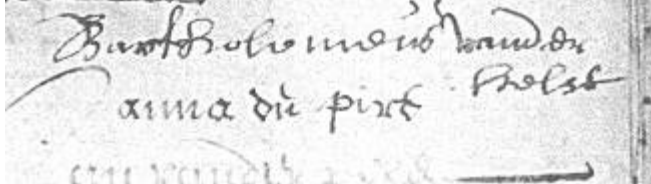 Bartholomeus vander
helst
anna du pirt